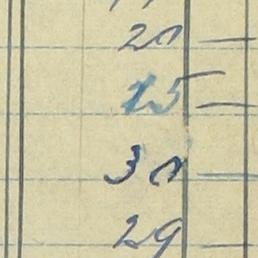 20 —
15 —
30 —
29 —